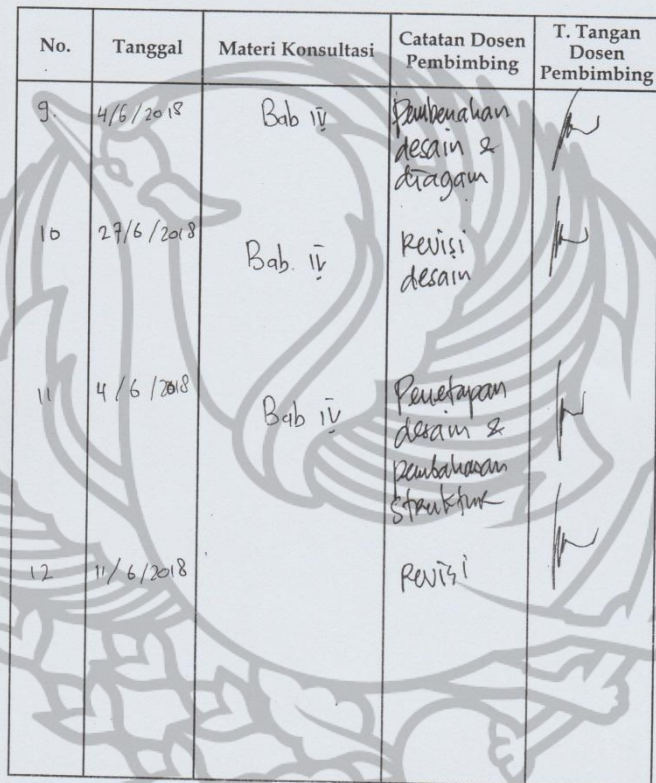 No. Tanggal Materi Konsultasi Catatan Dosen Pembimbing T. Tangan Dosen Pembimbing
9. 4/6/2018 Bab IV Pembenahan desain & diagam
10 27/6/2018 Bab. IV Revisi desain
11 4/6/2018 Bab IV Penetapan desain & pembahasan struktur
12 11/6/2018 Revisi